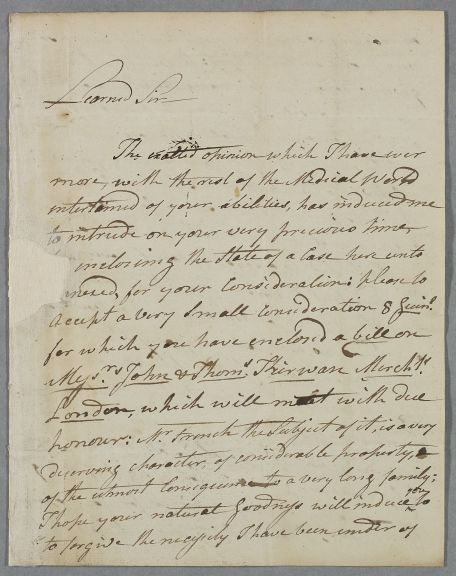 Learned Sir
The exalted opinion which I have ever
more, with the rest of the Medical World
entertained of your abilities, has induced me
to intrude on your very precious time,
enclosing the State of a Case here unto
nexed, for your Consideration: please to
accept a very Small Consideration 8 Guins.
for which you have enclosed a bill on
Messrs. John & Thoms. Kirwan Merchts.
London, which will meet with due
honour: Mr. French the Subject of it, is a very
deserving character, of considerable property, &
of the utmost Consequence to a very long family;
I hope your natural Goodness will induce you
to forgive the necessity I have been under of